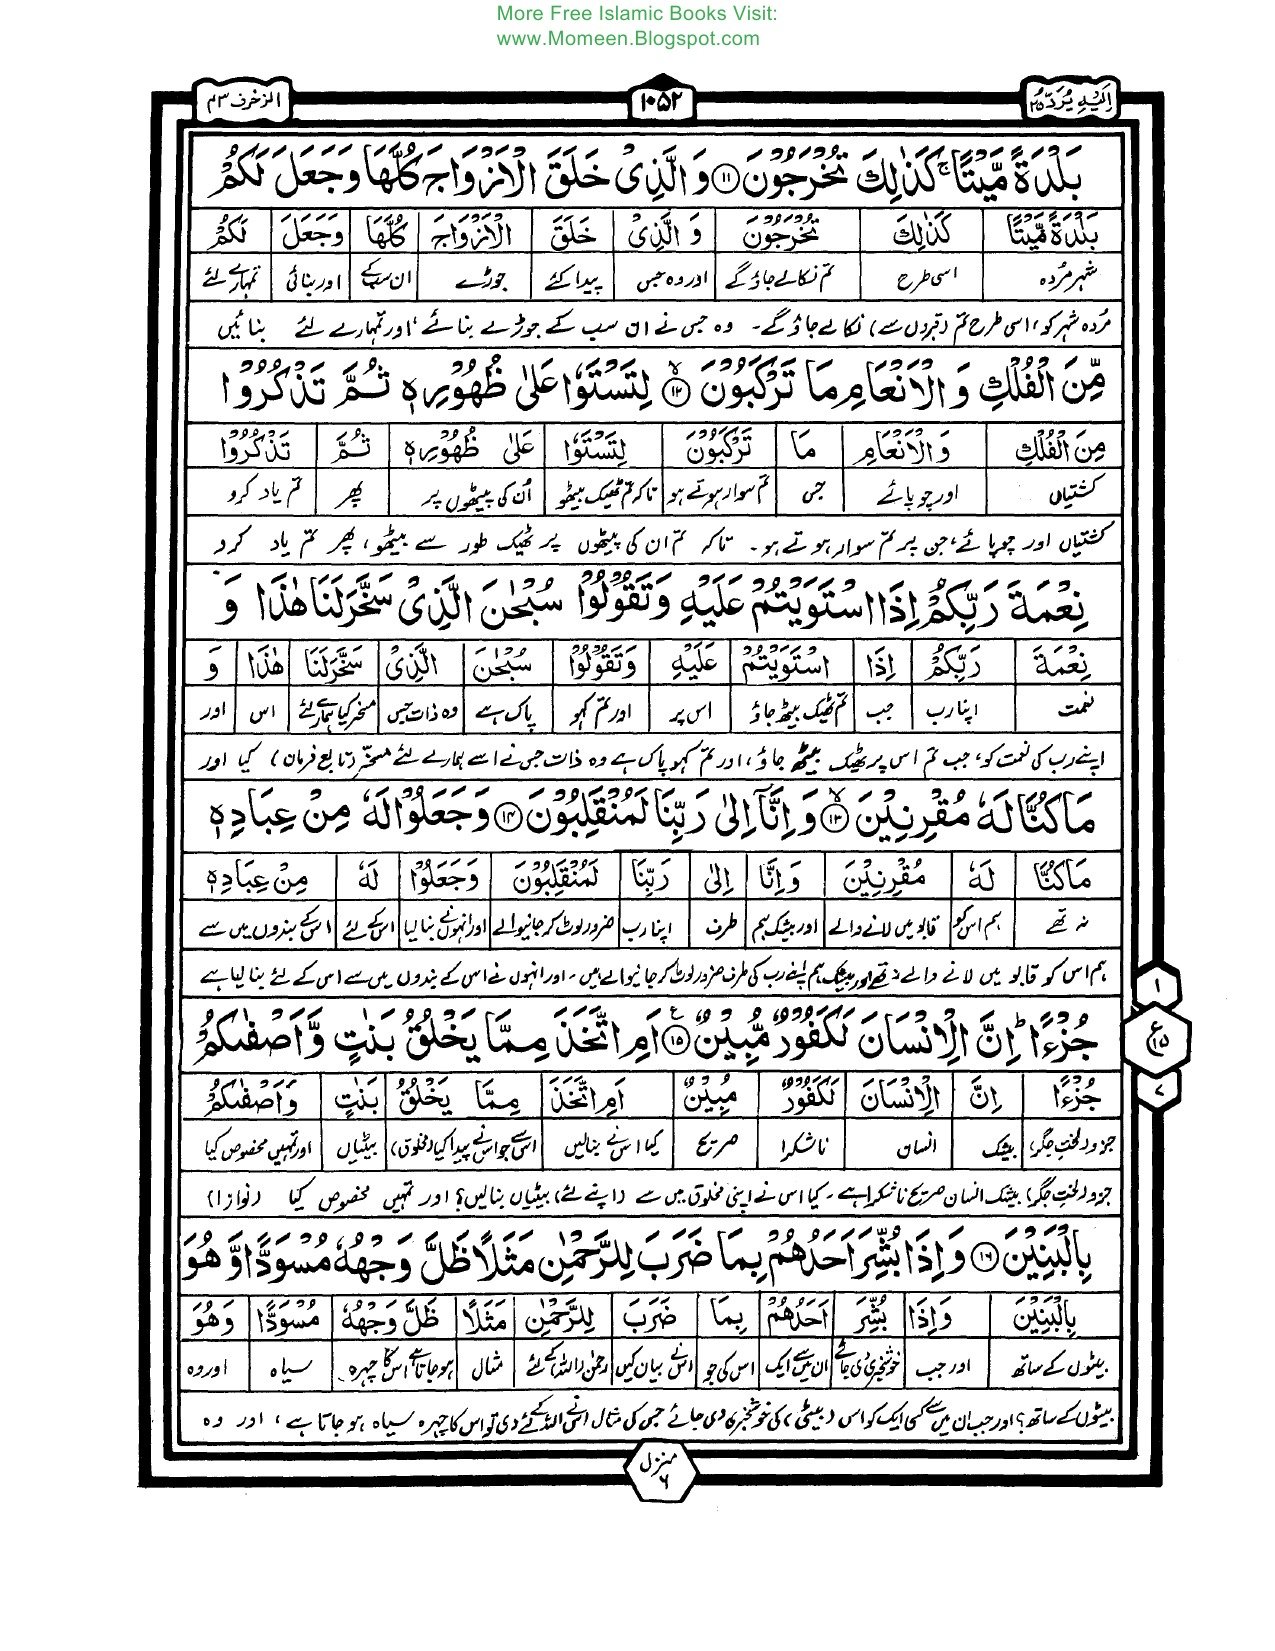 More Free Islamic Books Visit:
www.Momeen.Blogspot.com
اِلَیْہِ یُرَدُّ ۲۵ ۱۰۵۲ الزخرف ۴۳
بَلْدَةً مَّيْتًا ۚ كَذٰلِكَ تُخْرَجُوْنَ ۝۱۱ وَ الَّذِیْ خَلَقَ الْاَزْوَاجَ كُلَّهَا وَ جَعَلَ لَكُمْ
بَلْدَةً مَّيْتًا كَذٰلِكَ تُخْرَجُوْنَ وَ الَّذِیْ خَلَقَ الْاَزْوَاجَ كُلَّهَا وَجَعَلَ لَكُمْ
شہر مُردہ اسی طرح تم نکالے جاؤ گے اور وہ جس پیدا کئے جوڑے ان سب کے اور بنائی تمہارے لئے
مُردہ شہر کو، اسی طرح تم (قبروں سے) نکالے جاؤ گے۔ وہ جس نے ان سب کے جوڑے بنائے، اور تمہارے لئے بنائیں
مِّنَ الْفُلْكِ وَ الْاَنْعَامِ مَا تَرْكَبُوْنَ ۝۱۲ لِتَسْتَوٗا عَلٰى ظُهُوْرِهٖ ثُمَّ تَذْكُرُوْا
مِنَ الْفُلْكِ وَ الْاَنْعَامِ مَا تَرْكَبُوْنَ لِتَسْتَوٗا عَلٰى ظُهُوْرِهٖ ثُمَّ تَذْكُرُوْا
کشتیاں اور چوپائے جس تم سوار ہوتے ہو تاکہ تم ٹھیک بیٹھو اُن کی پیٹھوں پر پھر تم یاد کرو
کشتیاں اور چوپائے، جن پر تم سوار ہوتے ہو۔ تاکہ تم ان کی پیٹھوں پر ٹھیک طور سے بیٹھو، پھر تم یاد کرو
نِعْمَةَ رَبِّكُمْ اِذَا اسْتَوَيْتُمْ عَلَيْهِ وَ تَقُوْلُوْا سُبْحٰنَ الَّذِیْ سَخَّرَ لَنَا هٰذَا وَ
نِعْمَةَ رَبِّكُمْ اِذَا اسْتَوَيْتُمْ عَلَيْهِ وَتَقُوْلُوْا سُبْحٰنَ الَّذِیْ سَخَّرَلَنَا هٰذَا وَ
نعمت اپنا رب جب تم ٹھیک بیٹھ جاؤ اس پر اور تم کہو پاک ہے وہ ذات جس مسخر کیا ہمارے لئے اس اور
اپنے رب کی نعمت کو، جب تم اس پر ٹھیک بیٹھ جاؤ، اور تم کہو پاک ہے وہ ذات جس نے اسے ہمارے لئے مسخّر (تابع فرمان) کیا اور
مَا كُنَّا لَهٗ مُقْرِنِيْنَ ۝۱۳ وَ اِنَّاۤ اِلٰى رَبِّنَا لَمُنْقَلِبُوْنَ ۝۱۴ وَ جَعَلُوْا لَهٗ مِنْ عِبَادِهٖ
مَا كُنَّا لَهٗ مُقْرِنِيْنَ وَ اِنَّا اِلٰى رَبِّنَا لَمُنْقَلِبُوْنَ وَجَعَلُوْا لَهٗ مِنْ عِبَادِهٖ
نہ تھے ہم اس کو قابو میں لانے والے اور بیشک ہم طرف اپنا رب ضرور لوٹ کر جانیوالے اور انہوں نے بنا لیا اس کے لئے اس کے بندوں میں سے
ہم اس کو قابو میں لانے والے نہ تھے اور بیشک ہم اپنے رب کی طرف ضرور لوٹ کر جانیوالے ہیں۔ اور انہوں نے اس کے بندوں میں سے اس کے لئے بنا لیا ہے
جُزْءًا ؕ اِنَّ الْاِنْسَانَ لَكَفُوْرٌ مُّبِيْنٌ ۝۱۵ اَمِ اتَّخَذَ مِمَّا يَخْلُقُ بَنٰتٍ وَّ اَصْفٰىكُمْ
۱ ع ۱۵ ۷
جُزْءًا اِنَّ الْاِنْسَانَ لَكَفُوْرٌ مُبِيْنٌ اَمِ اتَّخَذَ مِمَّا يَخْلُقُ بَنٰتٍ وَاَصْفٰىكُمْ
جزو (لختِ جگر) بیشک انسان ناشکرا صریح کیا اس نے بنالیں اس سے جو اس نے پیدا کیا (مخلوق) بیٹیاں اور تمہیں مخصوص کیا
جزو (لختِ جگر) بیشک انسان صریح ناشکرا ہے۔ کیا اس نے اپنی مخلوق میں سے (اپنے لئے) بیٹیاں بنالیں؟ اور تمہیں مخصوص کیا (نوازا)
بِالْبَنِيْنَ ۝۱۶ وَ اِذَا بُشِّرَ اَحَدُهُمْ بِمَا ضَرَبَ لِلرَّحْمٰنِ مَثَلًا ظَلَّ وَجْهُهٗ مُسْوَدًّا وَّ هُوَ
بِالْبَنِيْنَ وَاِذَا بُشِّرَ اَحَدُهُمْ بِمَا ضَرَبَ لِلرَّحْمٰنِ مَثَلًا ظَلَّ وَجْهُهٗ مُسْوَدًّا وَهُوَ
بیٹوں کے ساتھ اور جب خوشخبری دی جائے ان میں سے ایک اس کی جو اس نے بیان کیں رحمٰن (اللہ) کے لئے مثال ہوجاتا ہے اس کا چہرہ سیاہ اور وہ
بیٹوں کے ساتھ؟ اور جب ان میں سے کسی ایک کو اس (بیٹی) کی خوشخبری دی جائے جس کی مثال اس نے اللہ کے لئے دی تو اس کا چہرہ سیاہ ہو جاتا ہے، اور وہ
منزل ۶